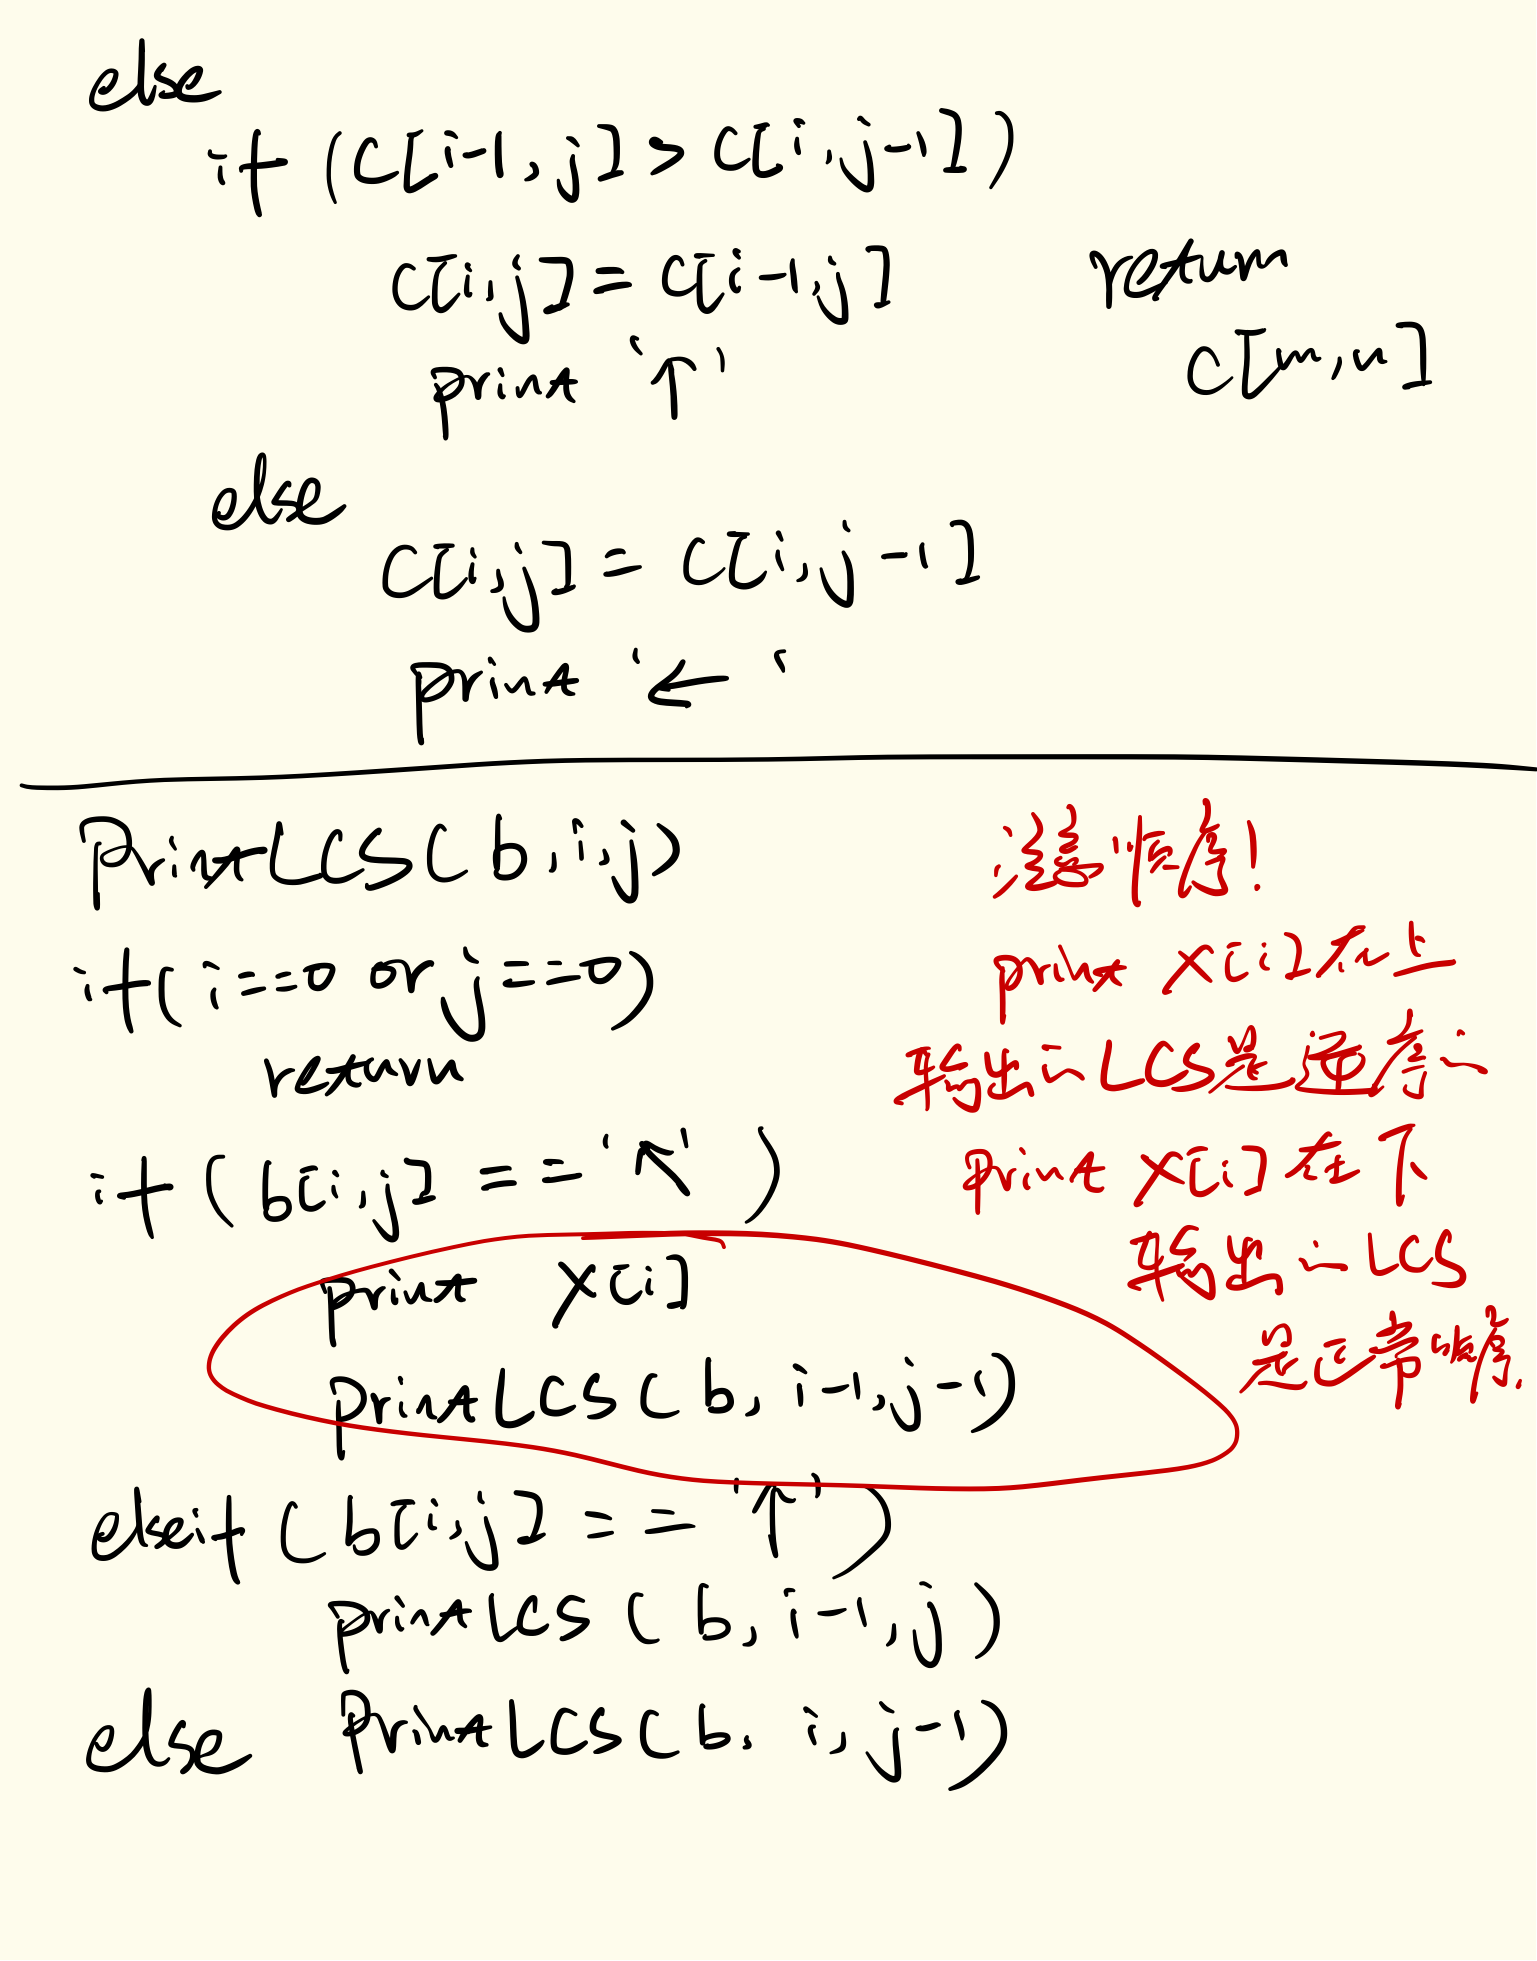 else
if (C[i-1, j] > C[i, j-1])
C[i,j] = C[i-1,j]
print '↑'
return
C[m,n]
else
C[i,j] = C[i, j-1]
print '←'
PrintLCS( b,i,j)
if( i==0 or j==0)
return
if ( b[i,j] == '↖' )
print X[i]
printLCS ( b, i-1, j-1)
elseif ( b[i,j] == '↑' )
printLCS ( b, i-1, j )
else PrintLCS ( b, i, j-1)
注意顺序!
print X[i]在上
输出的LCS是逆序的
print X[i]在下
输出的LCS
是正常顺序.